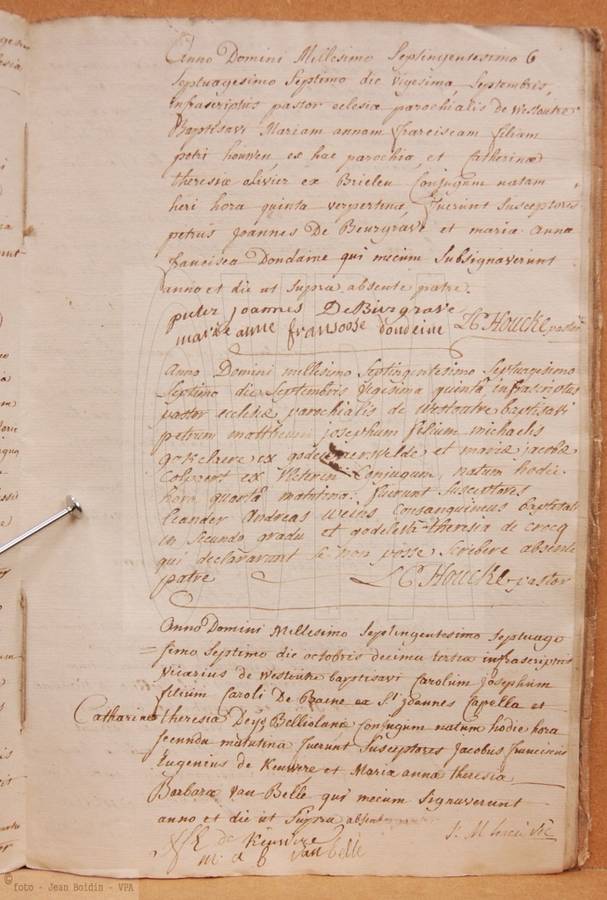 Anno Domini Millesimo Septingentesimo 6
Septuagesimo Septimo die vigesima, Septembris,
infrascriptus pastor eclesiæ parochialis de Westoutre
Baptisavi Mariam annam franciscam filiam
petri houwen, ex hac parochia, et Catharinæ
theresiæ olivier ex Brielen Conjugum natam
heri hora quinta verpertina, fuerunt Susceptores
petrus joannes De Beurgrave et maria anna
francisca Dondaine qui mecum Subsignaverunt
anno et die ut Supra absente patre.
pieter joannes DeBurgrave
marie anne fransoose dondeine Houcke pastor
Anno Domini millesimo Septingentesimo Septuagesimo
Septimo die Septembris vigesima quinta infrascriptus
pastor eclesiæ parochialis de Westoutre baptisavi
petrum mattheum josephum filium michaelis
ex et mariæ jacobæ
ex Conjugum natum hodie
hora quarta matutina. fuerunt Susceptores
leander Andreas Weins Consanguineus baptisati
in Secundo gradu et godelieta theresia de crocq
qui declaraverunt se non posse Scribere absente
patre Houcke pastor
Anno Domini Millesimo Septingentesimo Septuage
=simo Septimo die octobris decima tertia infrascriptus
Vicarius de Westoutre baptisavi Carolum Josephum
filium Caroli De Baene ex St joannes Capella et
Catharinæ theresia Conjugum natum hodie hora
Secunda matutina fuerunt Susceptores Jacobus franciscus
Eugenius de Keuwere et Maria anna theresia
Barbara Van Belle qui mecum Signaverunt
anno et die ut Supra absente
de Keuwere
m: a B van belle
© foto - Jean Boidin - VPA